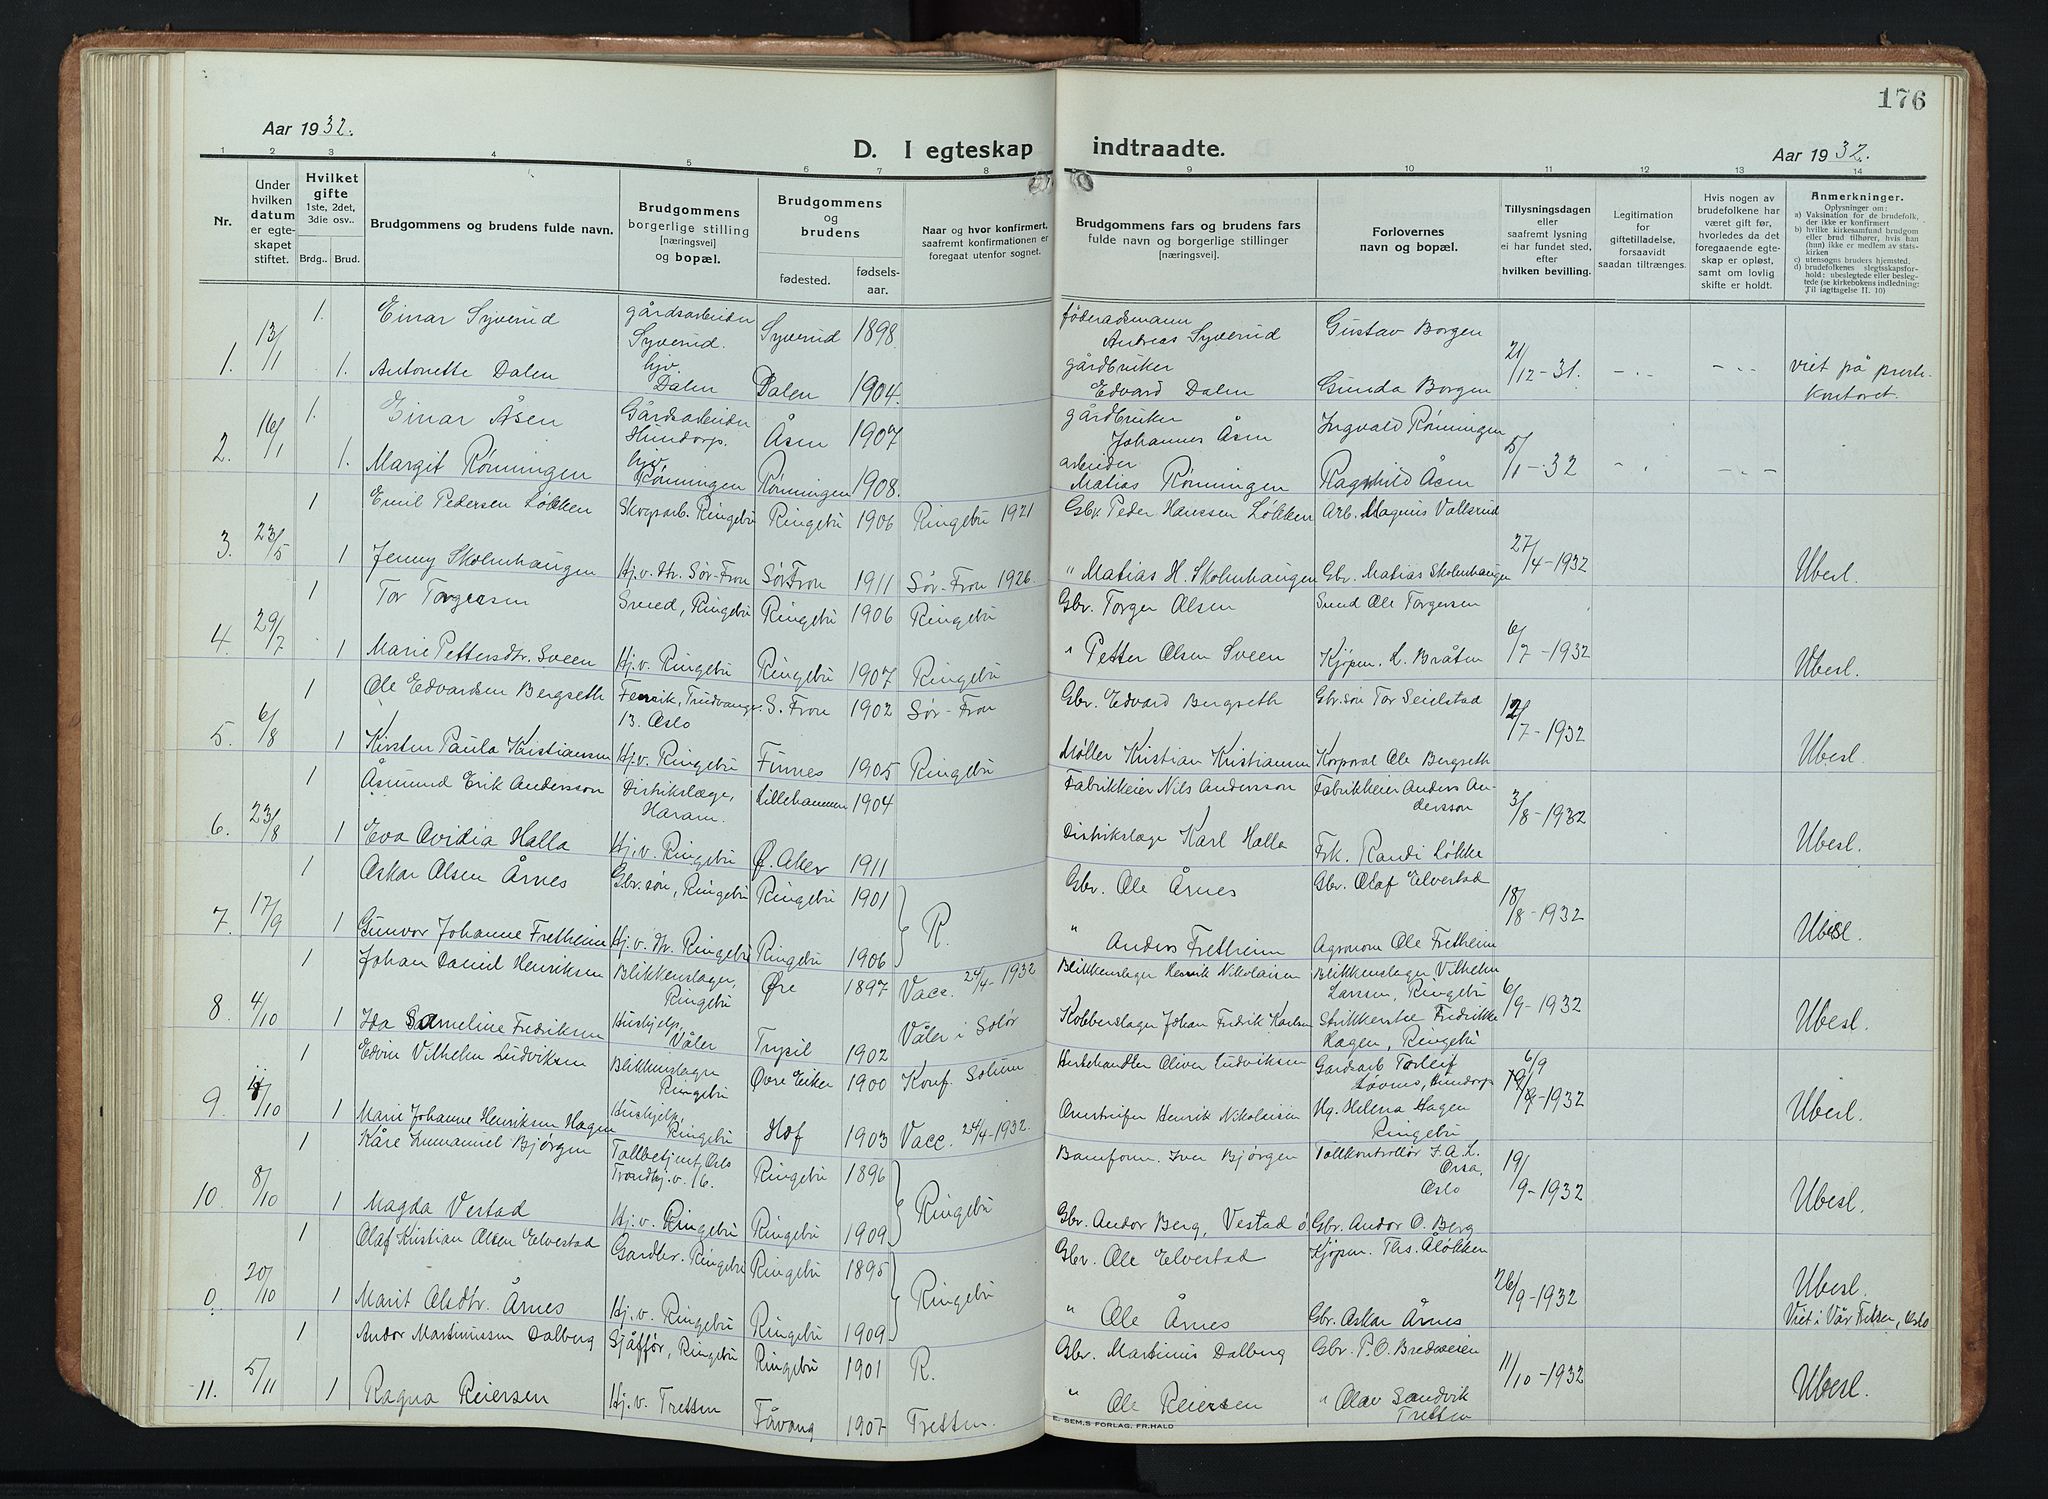 176
Aar 1932.
Aar 1932.
D. I egteskap indtraadte.
1 2 3 4 5 6 7 8 9 10 11 12 13 14
Nr.
Under
hvilken
datum
er egte-
skapet
stiftet.
Hvilket
gifte
1ste, 2det,
3die osv..
Brdg..
Brud.
Brudgommens og brudens fulde navn.
Brudgommens
borgerlige stilling
[næringsvei]
og bopæl.
Brudgommens
og
brudens
fødested.
fødsels-
aar.
Naar og hvor konfirmert,
saafremt konfirmationen er
foregaat utenfor sognet.
Brudgommens fars og brudens fars
fulde navn og borgerlige stillinger
[næringsvei].
Forlovernes
navn og bopæl.
Tillysningsdagen
eller
saafremt lysning
ei har fundet sted,
efter
hvilken bevilling.
Legitimation
for
giftetilladelse,
forsaavidt
saadan tiltrænges.
Hvis nogen av
brudefolkene har
været gift før,
hvorledes da det
foregaaende egte-
skap er opløst,
samt om lovlig
skifte er holdt.
Anmerkninger.
Oplysninger om:
a) Vaksination for de brudefolk,
der ikke er konfirmert
b) hvilke kirkesamfund brudgom
eller brud tilhører, hvis han
(hun) ikke er medlem av stats-
kirken
c) utensogns bruders hjemsted.
d) brudefolkenes slegtsskapsfor-
hold: ubeslegtede eller besleg-
tede (se kirkebokens indledning:
Til iagttagelse II. 10)
1. Einar Syverud gårdsarbeider Syverud. Syverud 1898 føderadsmann Andreas Syverud Gustav Borgen
1. 13/1 1. Antonette Dalen hjv. Dalen Dalen 1904. gårdbruker Edvard Dalen Gunda Borgen 21/12-31. viet på prestekontoret.
1. Einar Åsen Gårdsarbeider Hundorp. Åsen 1907 gårdbruker Johannes Åsen Ingvald Rønningen
2. 16/1 1. Margit Rønningen hjv. Rønningen Rønningen 1908. arbeider Matias Rønningen Ragnhild Åsen 5/1-32
1 Emil Pedersen Løkken Skogsarb. Ringebu Ringebu 1906 Ringebu 1921 Gbr. Peder Hanssen Løkken Arb. Magnus Vallsrud
3. 23/5 1 Jenny Skolmhaugen Hj.v. dtr. Sør-Fron Sør Fron 1911 Sør-Fron 1926. " Matias H. Skolmhaugen Gbr. Matias Skolmhaugen 27/4-1932 Ubesl.
1 Tor Torgersen Smed, Ringebu Ringebu 1906 Ringebu Gbr. Torger Olsen Smed Ole Torgersen
4. 29/7 1 Marie Pettersdtr. Sveen Hj.v. Ringebu Ringebu 1907 Ringebu " Petter Olsen Sveen Kjøpm. L. Bråten 6/7-1932 Ubesl.
1 Ole Edvardsen Bergseth Fenrik, Trudvangv. 13. Oslo S. Fron 1902 Sør-Fron Gbr. Edvard Bergseth Gbr.søn Tor Seielstad
5. 6/8 1 Kirsten Paula Kristiansen Hj.v. Ringebu Finnes 1905 Ringebu Møller Kristian Kristiansen Korporal Ole Bergseth 12/7-1932 Ubesl.
1 Åsmund Erik Andersson Distrikslæge, Haram. Lillehammer 1904 Fabrikkeier Nils Andersson Fabrikkeier Anders Andersson
6. 23/8 1 Eva Ovidia Halla Hj.v. Ringebu Ø. Aker 1911 Distrikslæge Karl Halla Frk. Randi Løkke 3/8-1932 Ubesl.
1 Oskar Olsen Årnes Gbr.søn, Ringebu Ringebu 1901 Gbr. Ole Årnes Gbr. Olaf Elvestad
7. 17/9 1 Gunvor Johanne Fretheim Hj.v. dtr. Ringebu Ringebu 1906 R. " Anders Fretheim Agronom Ole Fretheim 18/8-1932 Ubesl.
1 Johan Daniel Henriksen Blikkenslager, Ringebu Øre 1897 Vacc. 24/4-1932 Blikkenslager Henrik Nikolaisen Blikkenslager Vilhelm Larssen, Ringebu
8. 4/10 1 Ida Fredriksen Hushjelp, Våler Trysil 1902 Våler i Solør Kobberslager Johan Fredrik Karlsen Fredrikke Hagen, Ringebu 6/9-1932 Ubesl.
1 Edvin Vilhelm Ludviksen Blikkenslager Ringebu Øvre Eiker 1900 Konf. Solum Hestehandler Oliver Ludviksen Gardsarb Torleif Løvnes, Hundorp 6/9
9. /10 1 Marie Johanne Henriksen Hagen Hushjelp, Ringebu Hof 1903 Vacc. 24/4-1932. Omstreifer Henrik Nikolaisen Helena Hagen Ringebu 19/9-1932 Ubesl.
1 Kåre Immanuel Bjørgen Tollbetjent, Oslo Trondhj.v. 16. Ringebu 1896 Banform. Iver Bjørgen Tollkontrollør J.A.L. Orsa, Oslo
10. 8/10 1 Magda Vestad Hj.v. Ringebu Ringebu 1909 Ringebu Gbr. Andor Berg, Vestad ø Gbr. Andor O. Berg 19/9-1932 Ubesl.
1 Olaf Kristian Olsen Elvestad Gardbr. Ringebu Ringebu 1895 Gbr. Ole Elvestad Kjøpm. Ths. Åløkken
0. 20/10 1 Marit Olsdtr. Årnes Hj.v. Ringebu Ringebu 1909 Ringebu " Ole Årnes Gbr. Oskar Årnes 26/9-1932 Ubesl. Viet i Vår Frelser, Oslo
1 Andor Martinussen Dalberg Sjåffør, Ringebu Ringebu 1901 R. Gbr. Martinus Dalberg Gbr. P.O. Bredeveien
11. 5/11 1 Ragna Reiersen Hj.v. Tretten Fåvang 1907 Tretten. " Ole Reiersen " Olav Sandvik Tretten 11/10-1932 Ubesl.
E. SEM,S FORLAG, FR.HALD